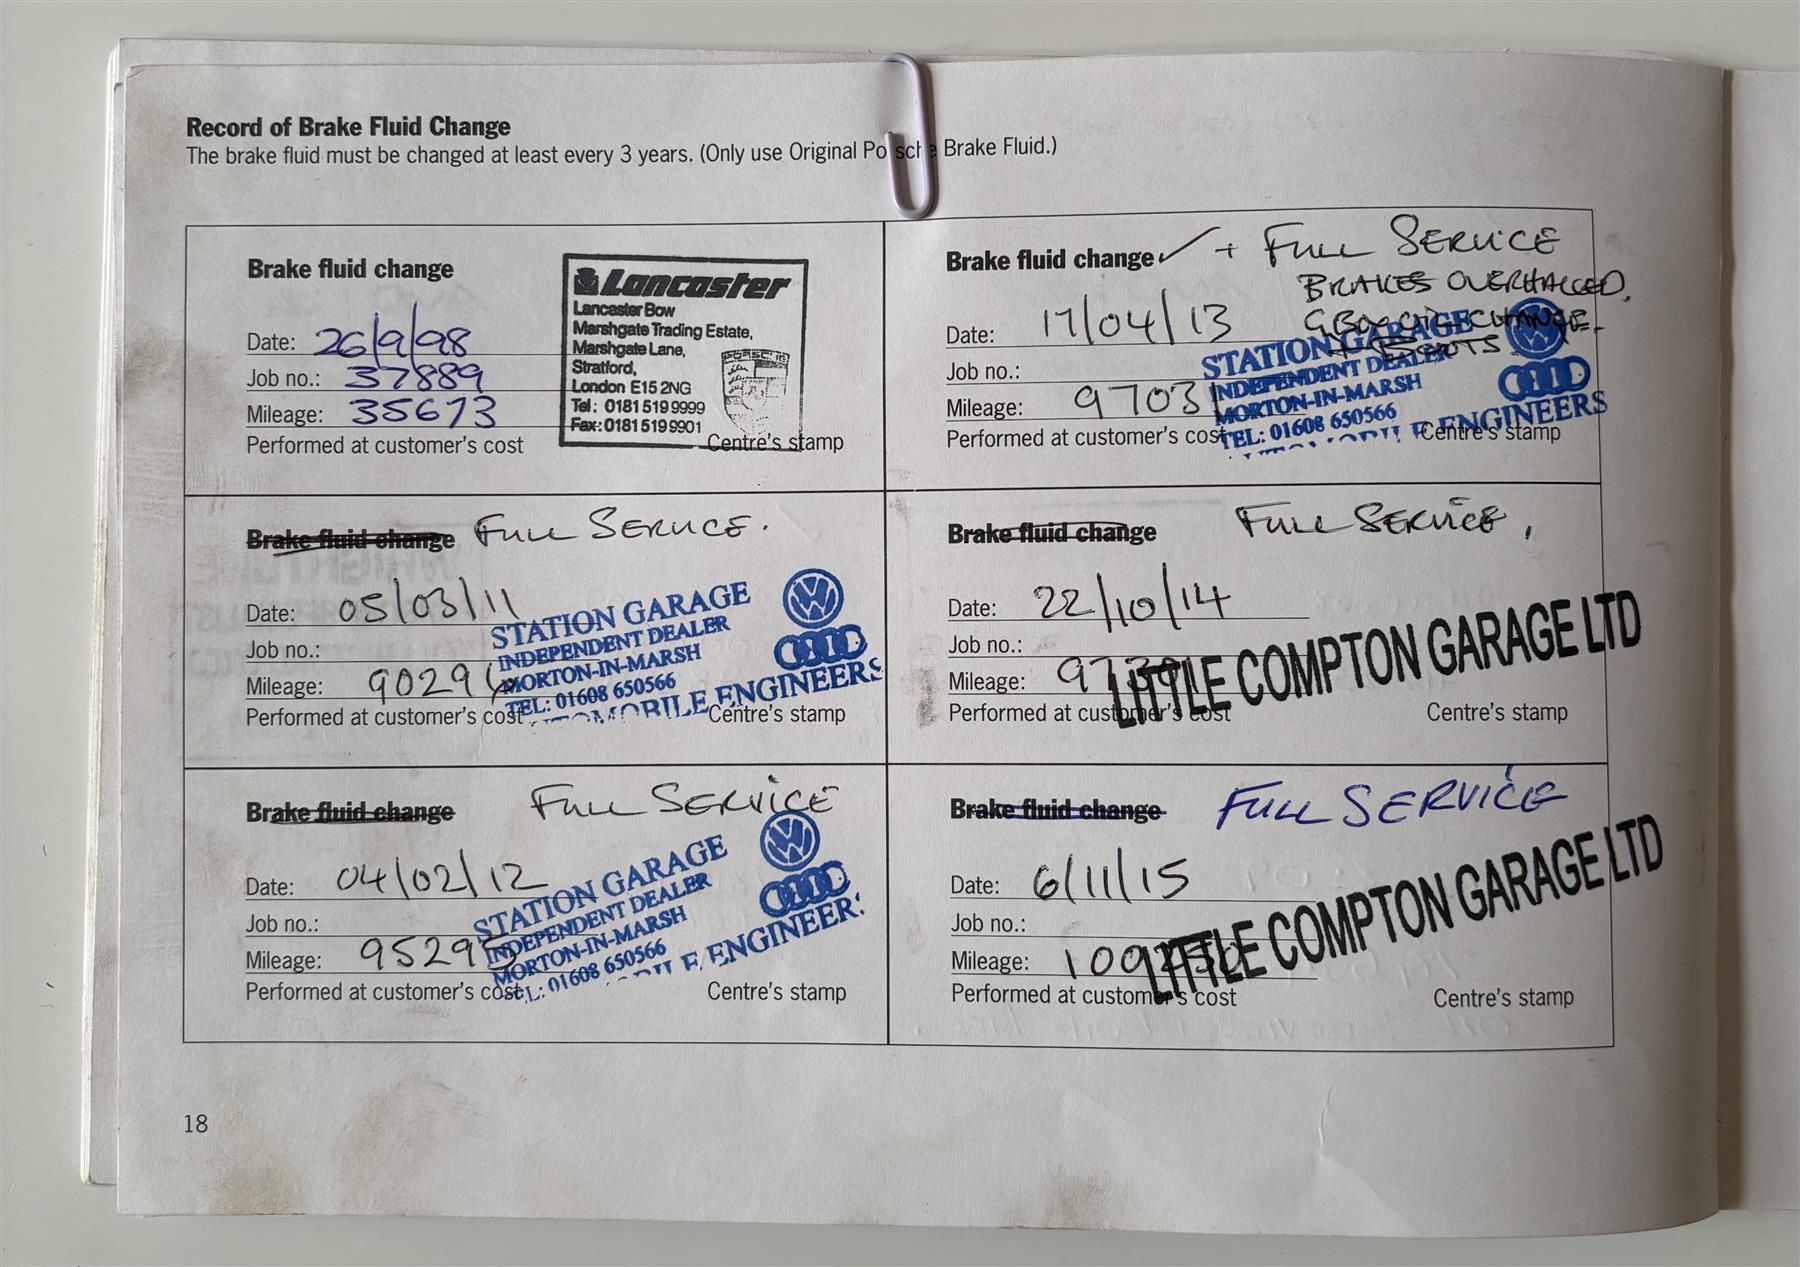 Record of Brake Fluid Change
The brake fluid must be changed at least every 3 years. (Only use Original Porsche Brake Fluid.)
Brake fluid change
Date: 26/9/98
Job no.: 37889
Mileage: 35673
Performed at customer's cost
Lancaster
Lancaster Bow
Marshgate Trading Estate,
Marshgate Lane,
Stratford,
London E15 2NG
Tel: 0181 519 9999
Fax: 0181 519 9901
Centre's stamp
Brake fluid change ✓ + FULL SERVICE
BRAKES OVERHALLED.
CHANGE
Date: 17/04/13
Job no.:
Mileage: 97031
Performed at customer's cost
STATION GARAGE
INDEPENDENT DEALER
MORTON-IN-MARSH
TEL: 01608 650566
ENGINEERS
Centre's stamp
Brake fluid change FULL SERVICE.
Date: 05/03/11
Job no.:
Mileage:
Performed at customer's cost
STATION GARAGE
INDEPENDENT DEALER
MORTON-IN-MARSH
TEL: 01608 650566
AUTOMOBILE ENGINEERS
Centre's stamp
Brake fluid change FULL SERVICE,
Date: 22/10/14
Job no.:
Mileage:
Performed at customer's cost
LITTLE COMPTON GARAGE LTD
Centre's stamp
Brake fluid change FULL SERVICE
Date: 04/02/12
Job no.:
Mileage: 95295
Performed at customer's cost
STATION GARAGE
INDEPENDENT DEALER
MORTON-IN-MARSH
TEL: 01608 650566
ENGINEERS
Centre's stamp
Brake fluid change FULL SERVICE
Date: 6/11/15
Job no.:
Mileage:
Performed at customer's cost
LITTLE COMPTON GARAGE LTD
Centre's stamp
18